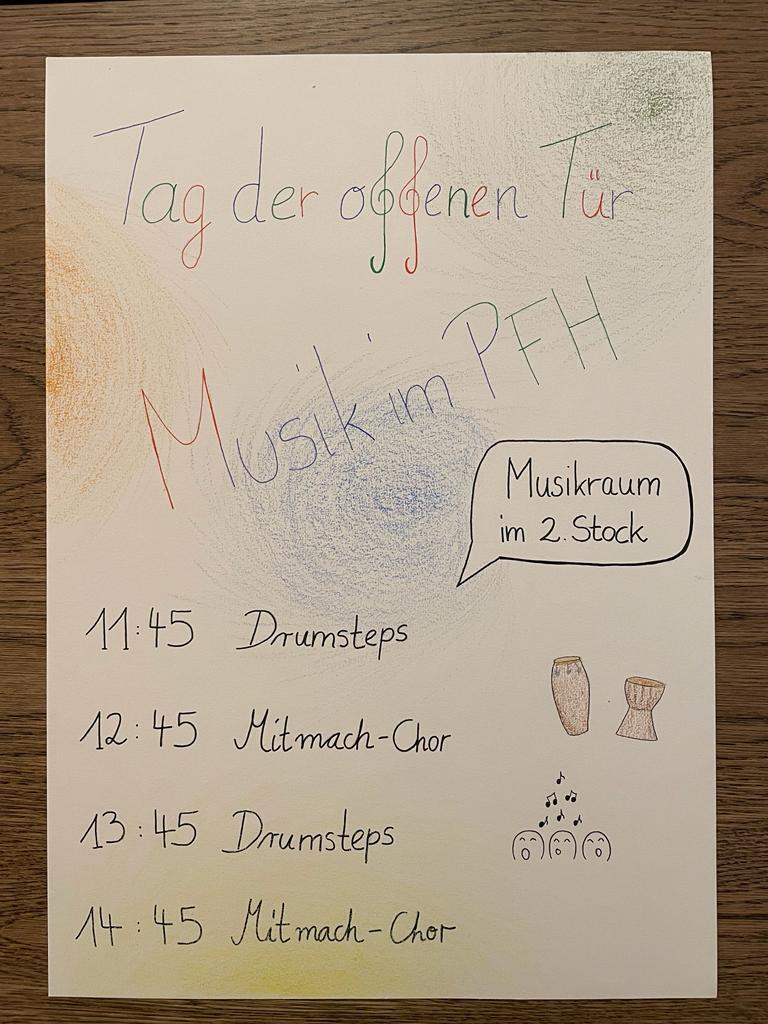 Tag der offenen Tür
Musik im PFH
Musikraum
im 2. Stock
11:45 Drumsteps
12:45 Mitmach-Chor
13:45 Drumsteps
14:45 Mitmach-Chor